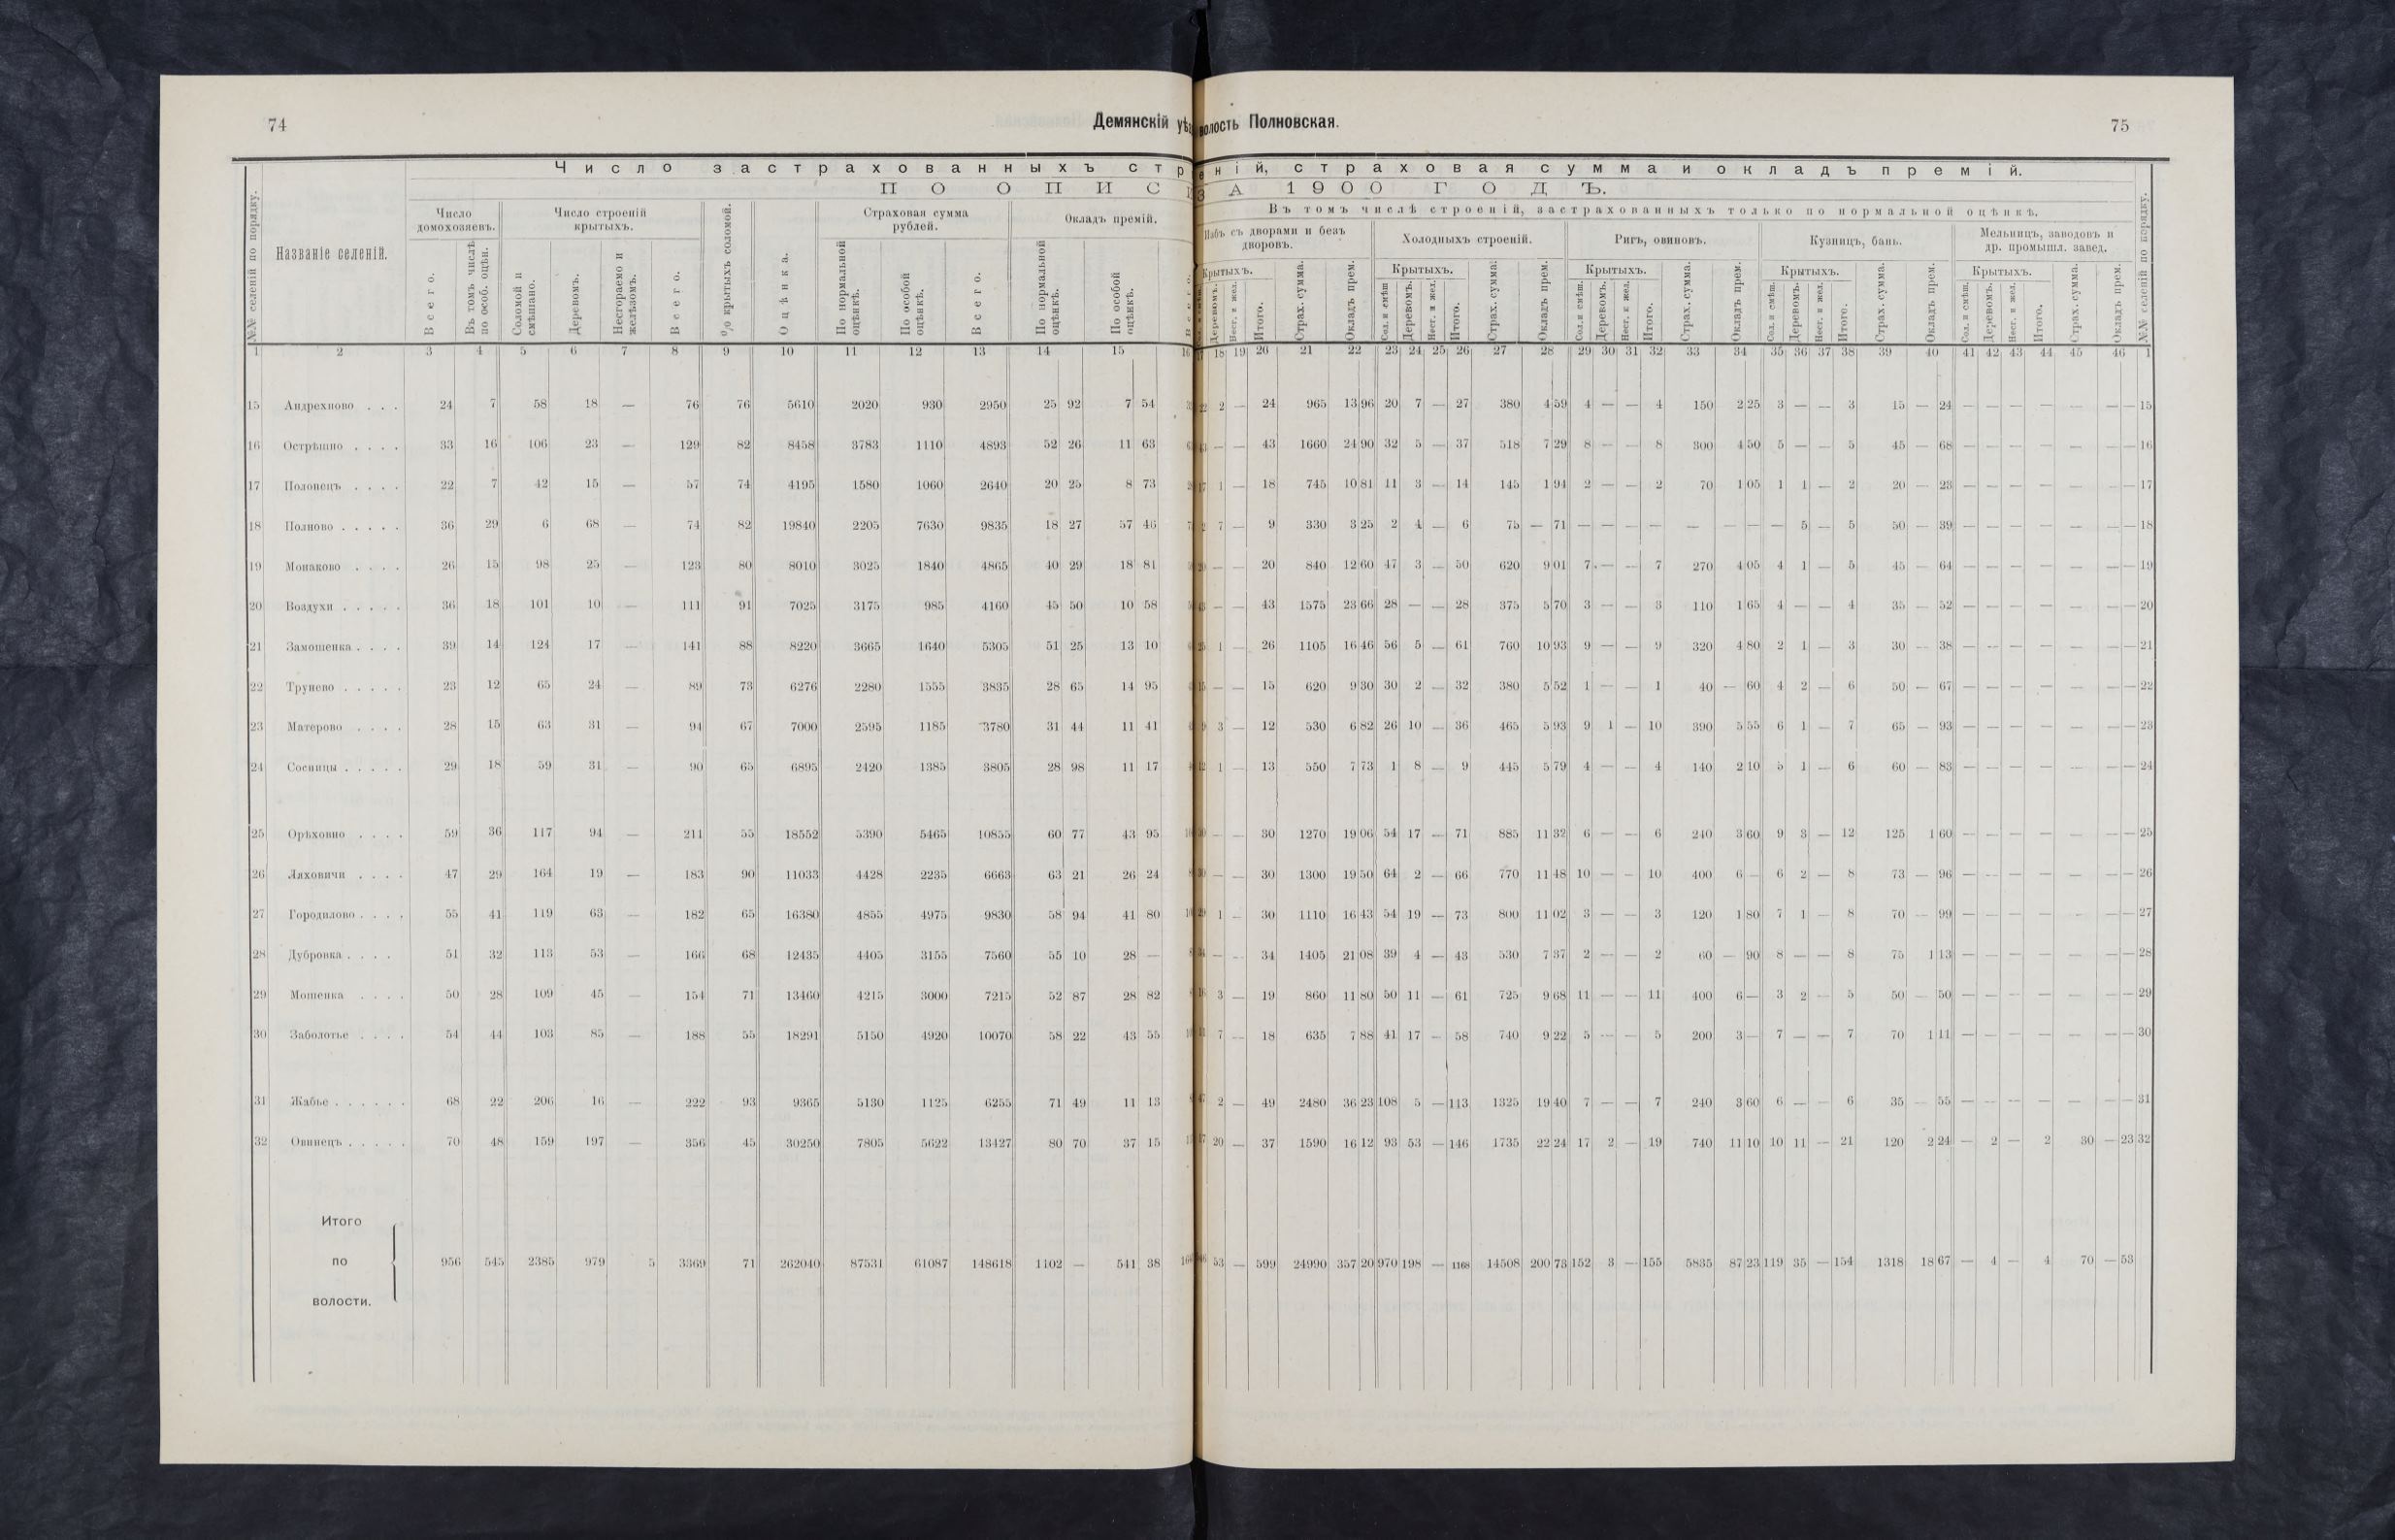 74
Демянскій уѣз
волость Полновская.
75
Число застрахованныхъ стр
еній, страховая сумма и окладъ премій.
ПО ОПИС
ЗА 1900 ГОДЪ.
Въ томъ числѣ строеній, застрахованныхъ только по нормальной оцѣнкѣ.
№№ селеній по порядку.
Названіе селеній.
Число домохозяевъ.
Число строеній крытыхъ.
% крытыхъ соломой.
Оцѣнка.
Страховая сумма рублей.
Окладъ премій.
Избъ съ дворами и безъ дворовъ.
Холодныхъ строеній.
Ригъ, овиновъ.
Кузницъ, бань.
Мельницъ, заводовъ и др. промышл. завед.
№№ селеній по порядку.
Всего.
Въ томъ числѣ по особ. оцѣн.
Соломой и смѣшано.
Деревомъ.
Несгораемо и желѣзомъ.
Всего.
По нормальной оцѣнкѣ.
По особой оцѣнкѣ.
Всего.
По нормальной оцѣнкѣ.
По особой оцѣнкѣ.
Крытыхъ.
Деревомъ.
Несг. и жел.
Итого.
Страх. сумма.
Окладъ прем.
Крытыхъ.
Сол. и смѣш
Деревомъ.
Несг. и жел.
Итого.
Страх. сумма.
Окладъ прем.
Крытыхъ.
Сол. и смѣш.
Деревомъ.
Несг. и жел.
Итого.
Страх. сумма.
Окладъ прем.
Крытыхъ.
Сол. и смѣш.
Деревомъ.
Несг. и жел.
Итого.
Страх. сумма.
Окладъ прем.
Крытыхъ.
Сол. и смѣш.
Деревомъ.
Несг. и жел.
Итого.
Страх. сумма.
Окладъ прем.
1 2 3 4 5 6 7 8 9 10 11 12 13 14 15 16 18 19 20 21 22 23 24 25 26 27 28 29 30 31 32 33 34 35 36 37 38 39 40 41 42 43 44 45 46 1
15 Андрехново . . . 24 7 58 18 — 76 76 5610 2020 930 2950 25 92 7 54 22 2 — 24 965 13 96 20 7 — 27 380 4 59 4 — — 4 150 2 25 3 — — 3 15 — 24 — — — — — — — 15
16 Острѣшно . . . . 33 16 106 23 — 129 82 8458 3783 1110 4893 52 26 11 63 — — 43 1660 24 90 32 5 — 37 518 7 29 8 — — 8 300 4 50 5 — — 5 45 — 68 — — — — — — — 16
17 Полонецъ . . . . 22 7 42 15 — 57 74 4195 1580 1060 2640 20 25 8 73 17 1 — 18 745 10 81 11 3 — 14 145 1 94 2 — — 2 70 1 05 1 1 — 2 20 — 23 — — — — — — — 17
18 Полново . . . . . 36 29 6 68 — 74 82 19840 2205 7630 9835 18 27 57 46 2 7 — 9 330 3 25 2 4 — 6 75 — 71 — — — — — — — — 5 — 5 50 — 39 — — — — — — — 18
19 Монаково . . . . 26 15 98 25 — 123 80 8010 3025 1840 4865 40 29 18 81 — — 20 840 12 60 47 3 — 50 620 9 01 7 — — 7 270 4 05 4 1 — 5 45 — 64 — — — — — — — 19
20 Воздухи . . . . . 36 18 101 10 — 111 91 7025 3175 985 4160 45 50 10 58 — — 43 1575 23 66 28 — — 28 375 5 70 3 — — 3 110 1 65 4 — — 4 35 — 52 — — — — — — — 20
21 Замошенка . . . . 39 14 124 17 — 141 88 8220 3665 1640 5305 51 25 13 10 25 1 — 26 1105 16 46 56 5 — 61 760 10 93 9 — — 9 320 4 80 2 1 — 3 30 — 38 — — — — — — — 21
22 Трунево . . . . . 23 12 65 24 — 89 73 6276 2280 1555 3835 28 65 14 95 15 — — 15 620 9 30 30 2 — 32 380 5 52 1 — — 1 40 — 60 4 2 — 6 50 — 67 — — — — — — — 22
23 Матерово . . . . 28 15 63 31 — 94 67 7000 2595 1185 3780 31 44 11 41 9 3 — 12 530 6 82 26 10 — 36 465 5 93 9 1 — 10 390 5 55 6 1 — 7 65 — 93 — — — — — — — 23
24 Сосницы . . . . . 29 18 59 31 — 90 65 6895 2420 1385 3805 28 98 11 17 12 1 — 13 550 7 73 1 8 — 9 445 5 79 4 — — 4 140 2 10 5 1 — 6 60 — 83 — — — — — — — 24
25 Орѣховно . . . . 59 36 117 94 — 211 55 18552 5390 5465 10855 60 77 43 95 — — 30 1270 19 06 54 17 — 71 885 11 32 6 — — 6 240 3 60 9 3 — 12 125 1 60 — — — — — — — 25
26 Ляховичи . . . . 47 29 164 19 — 183 90 11033 4428 2235 6663 63 21 26 24 — — 30 1300 19 50 64 2 — 66 770 11 48 10 — — 10 400 6 — 6 2 — 8 73 — 96 — — — — — — — 26
27 Городилово . . . . 55 41 119 63 — 182 65 16380 4855 4975 9830 58 94 41 80 29 1 — 30 1110 16 43 54 19 — 73 800 11 02 3 — — 3 120 1 80 7 1 — 8 70 — 99 — — — — — — — 27
28 Дубровка . . . . 51 32 113 53 — 166 68 12435 4405 3155 7560 55 10 28 — 34 — — 34 1405 21 08 39 4 — 43 530 7 37 2 — — 2 60 — 90 8 — — 8 75 1 13 — — — — — — — 28
29 Мошенка . . . . 50 28 109 45 — 154 71 13460 4215 3000 7215 52 87 28 82 16 3 — 19 860 11 80 50 11 — 61 725 9 68 11 — — 11 400 6 — 3 2 — 5 50 — 50 — — — — — — — 29
30 Заболотье . . . . 54 44 103 85 — 188 55 18291 5150 4920 10070 58 22 43 55 11 7 — 18 635 7 88 41 17 — 58 740 9 22 5 — — 5 200 3 — 7 — — 7 70 1 11 — — — — — — — 30
31 Жабье . . . . . . 68 22 206 16 — 222 93 9365 5130 1125 6255 71 49 11 13 47 2 — 49 2480 36 23 108 5 — 113 1325 19 40 7 — — 7 240 3 60 6 — — 6 35 — 55 — — — — — — — 31
32 Овинецъ . . . . . 70 48 159 197 — 356 45 30250 7805 5622 13427 80 70 37 15 17 20 — 37 1590 16 12 93 53 — 146 1735 22 24 17 2 — 19 740 11 10 10 11 — 21 120 2 24 — 2 — 2 30 — 23 32
Итого
по
волости.
956 545 2385 979 5 3369 71 262040 87531 61087 148618 1102 — 541 38 53 — 599 24990 357 20 970 198 — 1168 14508 200 73 152 3 — 155 5835 87 23 119 35 — 154 1318 18 67 — 4 — 4 70 — 53